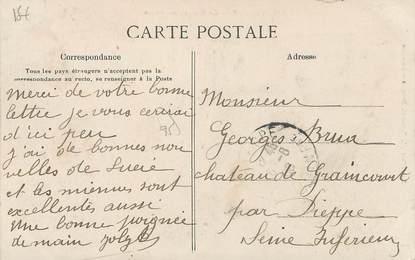 CARTE POSTALE
Correspondance
Tous les pays étrangers n'acceptent pas la
correspondance au recto, se renseigner à la Poste
Merci de votre bonne
lettre je vous ecrirai
d'ici peu
j'ai de bonnes nou
velles de Lucie
et les miennes sont
excellentes aussi
Une bonne poignée
de main
Adresse
Monsieur
Georges
chateau de Graincourt
par Dieppe
Seine Inferieure